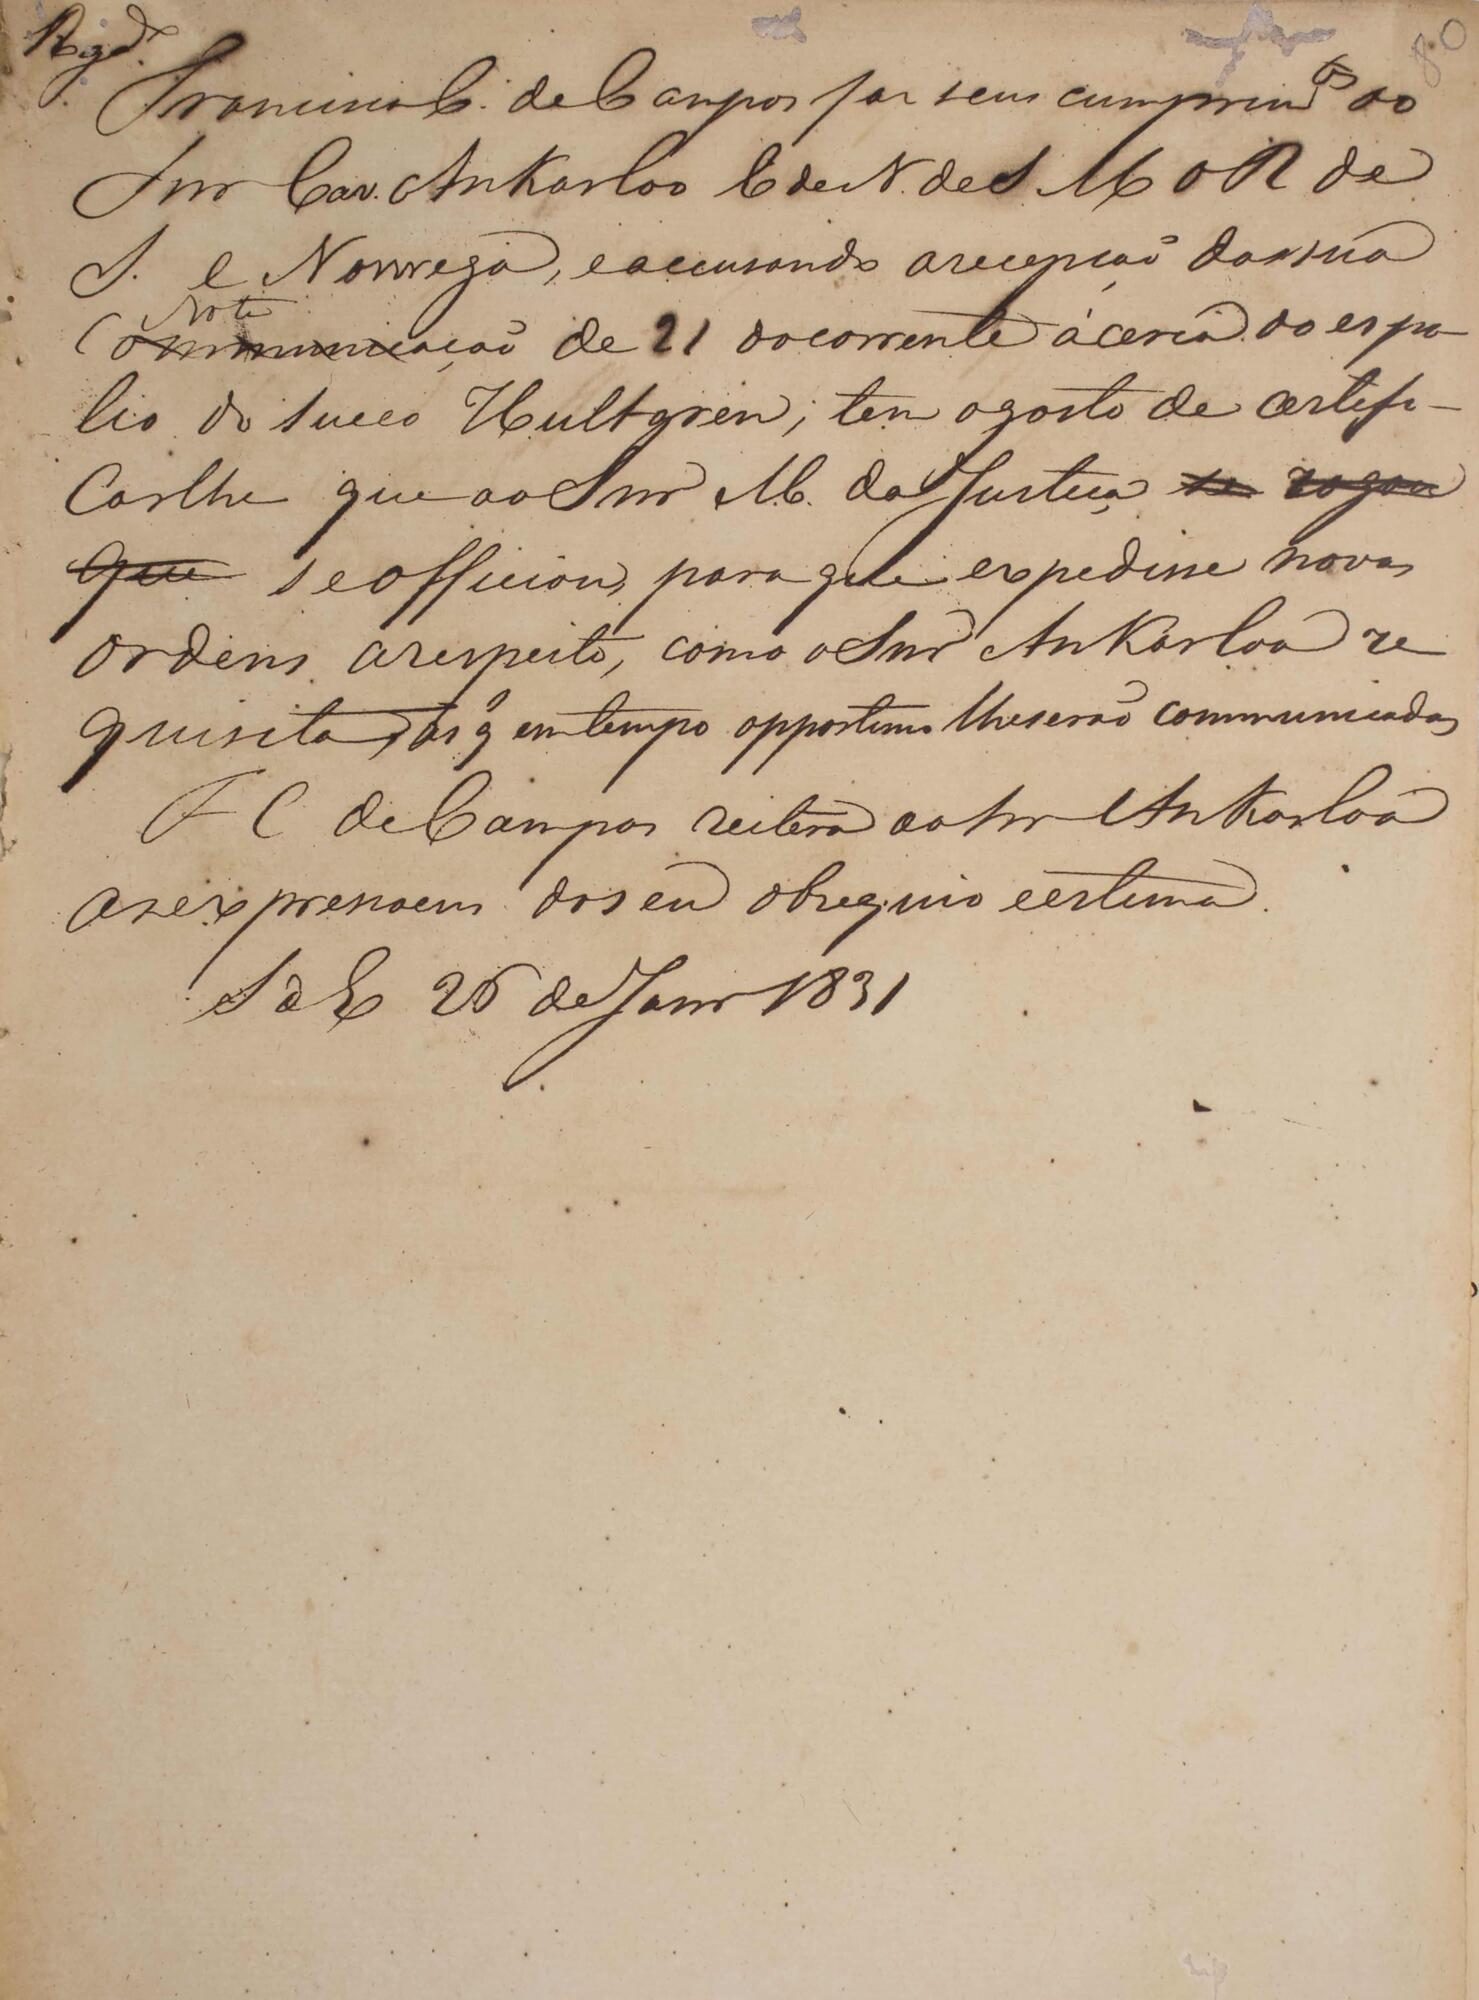 80
Rgd.
Francisco C. de Campos faz seus cumprimtos ao
Snr Cav. Ankarloo E de N. de S. M O R de
S. e Norwega, e accusando a recepção da sua
Nota
Communicação de 21 do corrente ácerca do espo-
lio do sueco Hultgren; tem o gosto de certifi-
carlhe que ao Snr M. da Justiça se rogou
que se officiou, para que expedisse novas
ordens a respeito, como o Snr Ankarloo re
quisita, as q̃ em tempo opportuno lhe serão communicadas
F C de Campos reitera ao Snr Ankarloo
as expressoens do seu obsequio e estima.
S d E 26 de Janr 1831